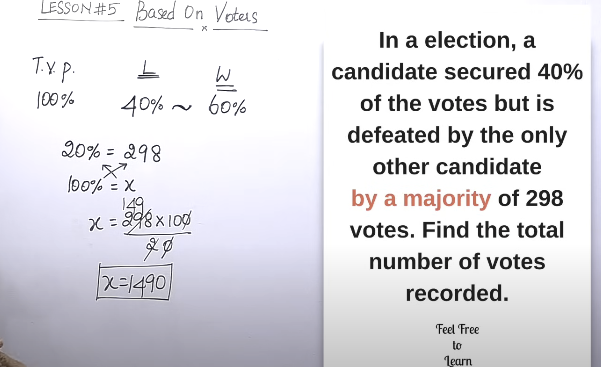 LESSON#5 Based On Voters
x
T.V.P. L W
100% 40% ~ 60%
20% = 298
100% = x
149
x = 298 x 100
20
x=1490
In a election, a
candidate secured 40%
of the votes but is
defeated by the only
other candidate
by a majority of 298
votes. Find the total
number of votes
recorded.
Feel Free
to
Learn